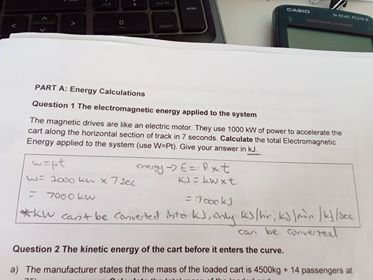 CASIO
PART A: Energy Calculations
Question 1 The electromagnetic energy applied to the system
The magnetic drives are like an electric motor. They use 1000 kW of power to accelerate the
cart along the horizontal section of track in 7 seconds. Calculate the total Electromagnetic
Energy applied to the system (use W=Pt). Give your answer in kJ.
w=pt energy → E = P x t
w= 1000 kw x 7sec kJ = kW x t
= 7000 kW = 7000 kJ
*kW can't be converted into kJ, only kJ/hr, kJ/min / kJ/sec
can be converted
Question 2 The kinetic energy of the cart before it enters the curve.
a) The manufacturer states that the mass of the loaded cart is 4500kg + 14 passengers at